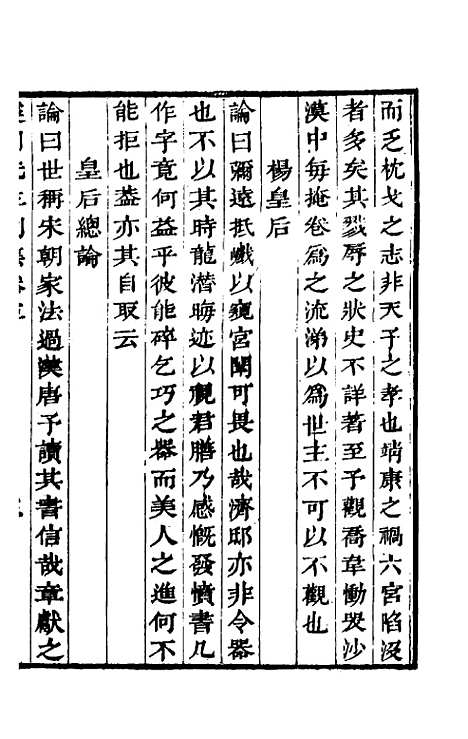 而乏枕戈之志非天子之孝也靖康之禍六宮陷沒
者多矣其戮辱之狀史不詳著至予觀喬韋慟哭沙
漠中每掩卷爲之流涕以爲世主不可以不觀也
楊皇后
論曰彌遠抵巇以窺宮闈可畏也哉濟邸亦非令器
也不以其時龍潛晦迹以視君膳乃感慨發憤書几
作字竟何益乎彼能碎乞巧之器而美人之進何不
能拒也葢亦其自取云
皇后總論
論曰世稱宋朝家法過漢唐予讀其書信哉章獻之